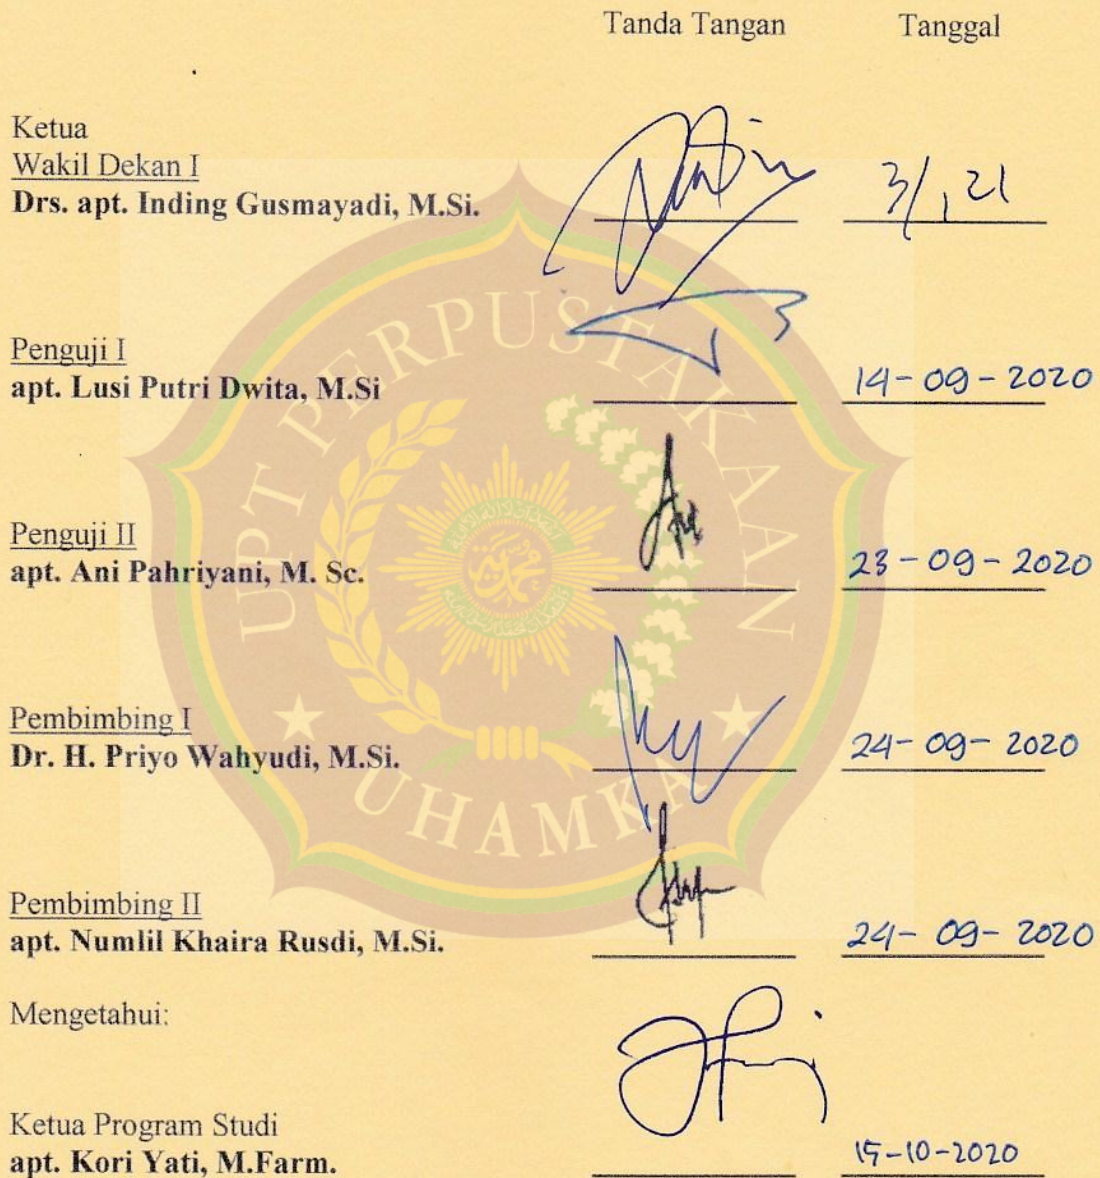 Tanda Tangan Tanggal
Ketua
Wakil Dekan I
Drs. apt. Inding Gusmayadi, M.Si.
3/1 21
Penguji I
apt. Lusi Putri Dwita, M.Si
14-09-2020
Penguji II
apt. Ani Pahriyani, M. Sc.
23-09-2020
Pembimbing I
Dr. H. Priyo Wahyudi, M.Si.
24-09-2020
Pembimbing II
apt. Numlil Khaira Rusdi, M.Si.
24-09-2020
Mengetahui:
Ketua Program Studi
apt. Kori Yati, M.Farm.
15-10-2020
UPT PERPUSTAKAAN
UHAMKA